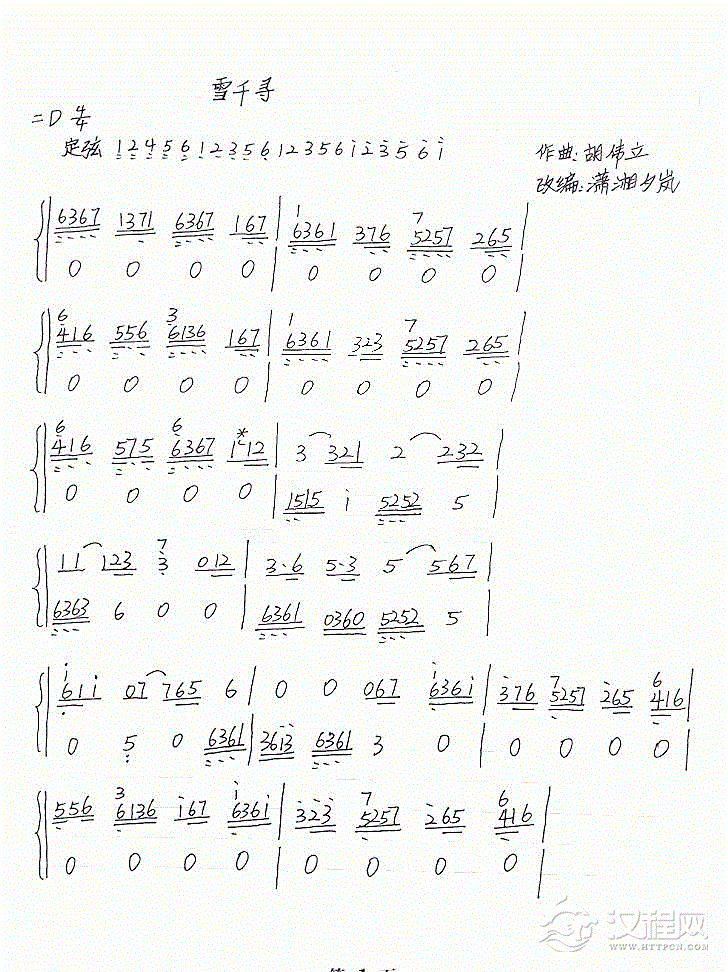 雪千寻
=D 4/4
定弦 1 2 4 5 6 1 2 3 5 6 1 2 3 5 6 1 2 3 5 6 1
作曲:胡伟立
改编:潇湘夕岚
6367 1371 6367 167 | 1 6361 376 7 5257 265
0 0 0 0 | 0 0 0 0
6 416 556 3 6136 167 | 1 6361 323 7 5257 265
0 0 0 0 | 0 0 0 0
6 416 575 6 6367 1*12 | 3 321 2 232
0 0 0 0 | 1515 i 5252 5
11 123 7 3 012 | 3·6 5·3 5 567
6363 6 0 0 | 6361 0360 5252 5
i 61i 07 765 6 | 0 0 067 636i | 376 7 5257 265 6 416
0 5 0 6361 | 3613 6361 3 0 | 0 0 0 0
556 3 6136 i67 i 636i | 323 7 5257 265 6 416
0 0 0 0 | 0 0 0 0
汉程网
WWW.HTTPCN.COM